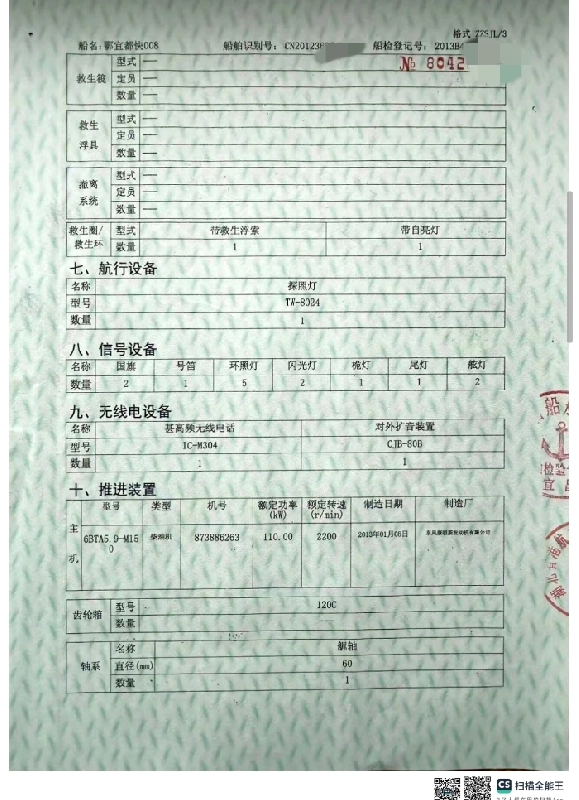 格式 ZZSJL/3
船名：鄂宜都快008 船舶识别号：CN20123 船检登记号：2013B4
№ 8042
救生筏 型式 —
定员 —
数量 —
救生浮具 型式 —
定员 —
数量 —
撤离系统 型式 —
定员 —
数量 —
救生圈/救生环 型式 带救生浮索 带自亮灯
数量 1 1
七、航行设备
名称 探照灯
型号 TW-8024
数量 1
八、信号设备
名称 国旗 号笛 环照灯 闪光灯 桅灯 尾灯 舷灯
数量 2 1 5 2 1 1 2
九、无线电设备
名称 甚高频无线电话 对外扩音装置
型号 IC-M304 CJB-60B
数量 1 1
十、推进装置
主机 型号 类型 机号 额定功率(kW) 额定转速(r/min) 制造日期 制造厂
6BTA5.9-M150 柴油机 873886263 110.00 2200
齿轮箱 型号 120C
数量
轴系 名称 艉轴
直径(mm) 60
数量 1
船
检验
宜昌
湖北
港航
CS 扫描全能王